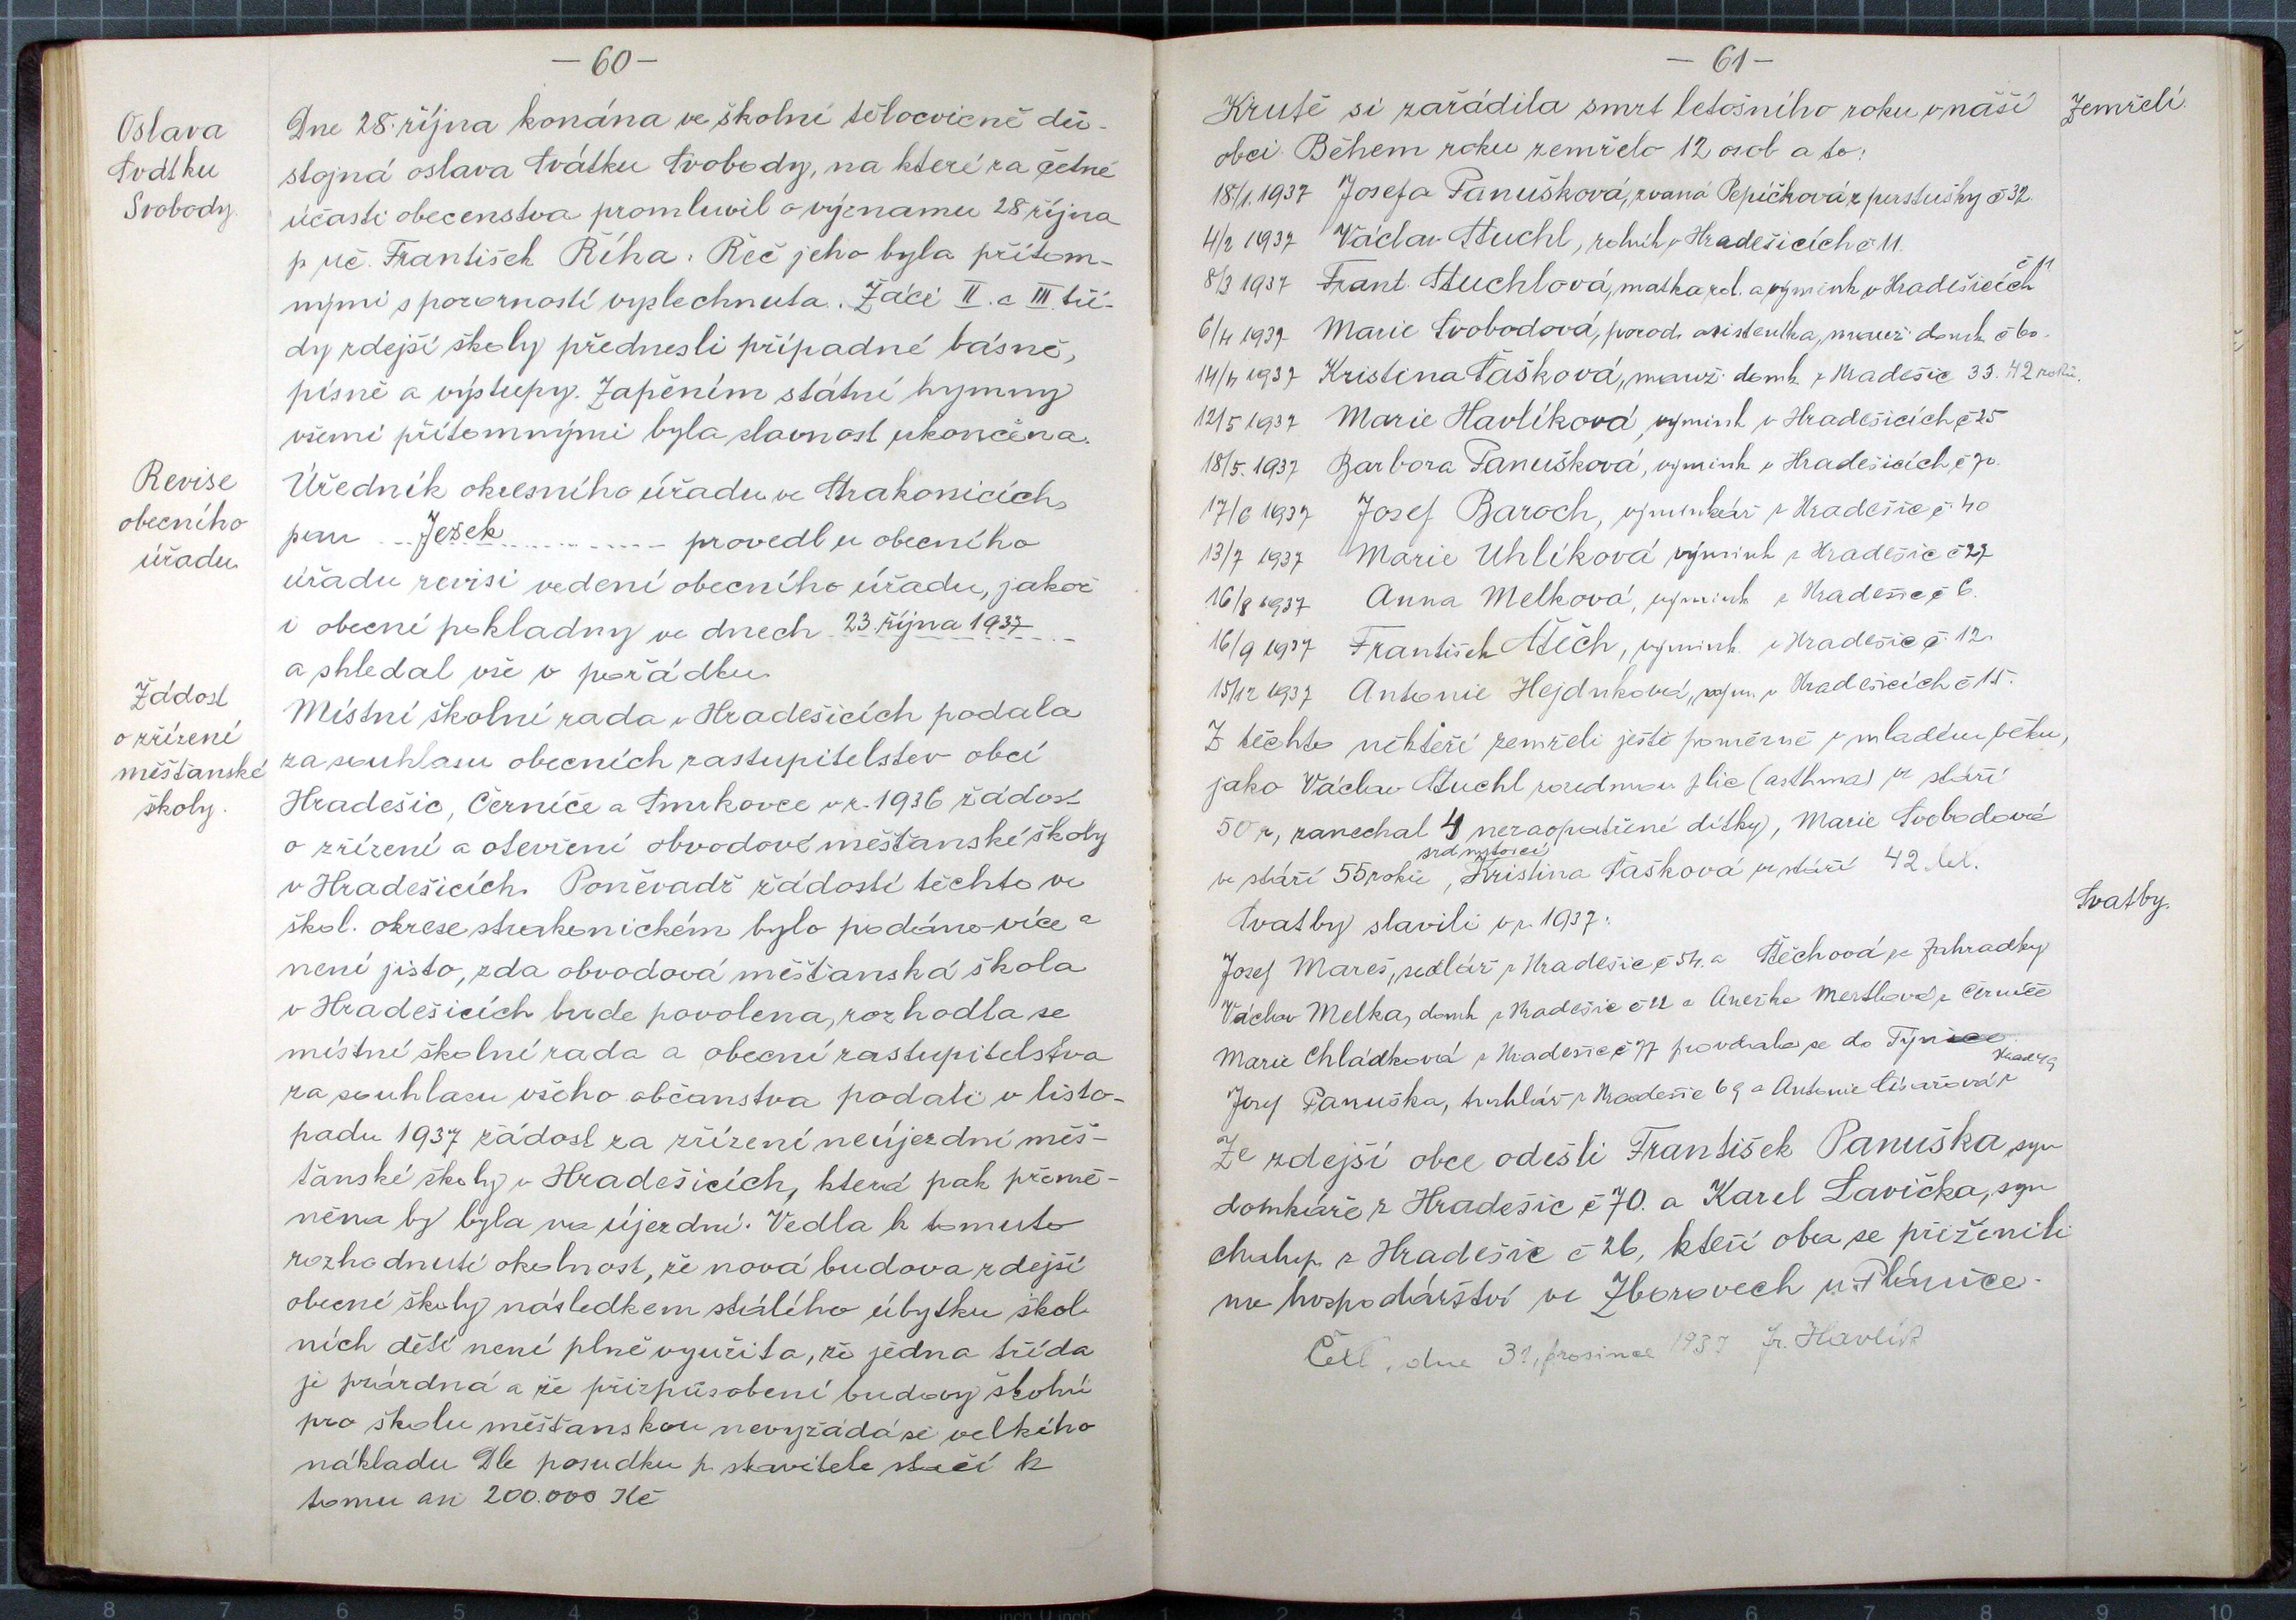 — 60 —
Oslava
Svátku
Svobody.
Dne 28. října konána ve školní tělocvičně dů-
stojná oslava Svátku Svobody, na které za četné
účasti obecenstva promluvil o významu 28 října
p. uč. František Říha. Řeč jeho byla přítom-
nými s pozorností vyslechnuta. Žáci II. a III. tří-
dy zdejší školy přednesli případné básně,
písně a výstupy. Zapěním státní hymny
všemi přítomnými byla slavnost ukončena.
Revise
obecního
úřadu.
Úředník okresního úřadu ve Strakonicích
pan Ješek provedl u obecního
úřadu revisi vedení obecního úřadu, jakož
i obecní pokladny ve dnech 23. října 1937
a shledal vše v pořádku.
Žádost
o zřízení
měšťanské
školy.
Místní školní rada v Hradešicích podala
za souhlasu obecních zastupitelstev obcí
Hradešic, Černíče a Smrkovce v r. 1936 žádost
o zřízení a otevření obvodové měšťanské školy
v Hradešicích. Poněvadž žádostí těchto ve
škol. okrese strakonickém bylo podáno více a
není jisto, zda obvodová měšťanská škola
v Hradešicích bude povolena, rozhodla se
místní školní rada a obecní zastupitelstva
za souhlasu všeho občanstva podati v listo-
padu 1937 žádost za zřízení neújezdní měš-
ťanské školy v Hradešicích, která pak přemě-
něna by byla na újezdní. Vedla k tomuto
rozhodnutí okolnost, že nová budova zdejší
obecné školy následkem stálého úbytku škol-
ních dětí není plně využita, že jedna třída
je prázdná a že přizpůsobení budovy školní
pro školu měšťanskou nevyžádá si velkého
nákladu. Dle posudku p. stavitele stačí k
tomu asi 200.000 Kč
— 61 —
Zemřelí.
Krutě si zařádila smrt letošního roku v naší
obci. Během roku zemřelo 12 osob a to:
18./1. 1937 Josefa Panušková, zvaná Pepíčková z pastušky č 32.
4/2 1937 Václav Stuchl, rolník v Hradešicích č 11.
8/3 1937 Frant. Stuchlová, matka rol. a výmink v Hradešicích č 11
6/4 1937 Marie Svobodová, porod. asistentka, manž. domk č 60.
14/4 1937 Kristina Tašková, manž. domk z Hradešic 33. 42 roků.
12/5 1937 Marie Havlíková, výmink v Hradešicích č 25
18/5. 1937 Barbora Panušková, výmink v Hradešicích č 70.
17/6 1937 Josef Baroch, výminkář z Hradešic č. 40
13/7 1937 Marie Uhlíková výmink z Hradešic č 27
16/8 1937 Anna Melková, výmink z Hradešic č 6.
16/9 1937 František Stěch, výmink. z Hradešic č. 12.
15/12 1937 Antonie Hejduková, výmn. v Hradešicích č 15.
Z těchto někteří zemřeli ještě poměrně v mladém věku,
jako Václav Stuchl rozedmou plic (asthma) ve stáří
50 r, zanechal 4 nezaopatřené dítky, Marie Svobodová
ve stáří 55 roků, Kristina Tašková ve stáří 42 let.
Svatby.
Svatby slavili v r. 1937:
Josef Mareš, sedlář z Hradešic č 54. a Stěchová ze Zahrádky
Václav Melka, domk z Hradešic č 22 a Anežka Mertlová z Černíče
Marie Chládková z Hradešic č 77 provdala se do Týnice
Josef Panuška, truhlář z Hradešic 69 a Antonie Císařová z Hrad 49
Ze zdejší obce odešli František Panuška, syn
domkáře z Hradešic č 70. a Karel Lavička, syn
chalup. z Hradešic č 26, kteří oba se přiženili
na hospodářství ve Zborovech u Plánice.
Četl, dne 31. prosince 1937 Fr. Havlík